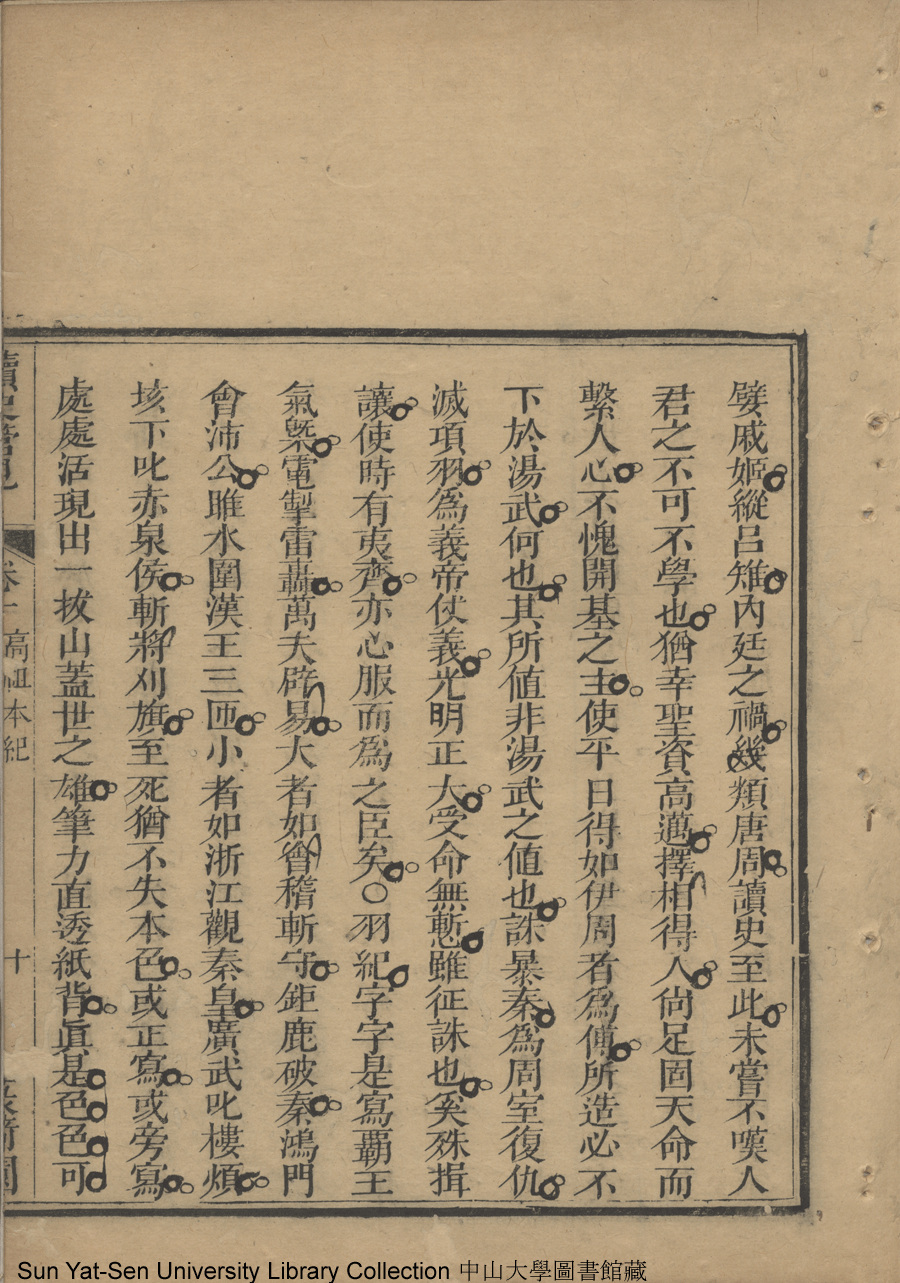 嬖戚姬縱呂雉內廷之禍幾類唐周讀史至此未嘗不嘆人
君之不可不學也猶幸聖資高邁擇相得人尙足固天命而
繫人心不愧開基之主使平日得如伊周者爲傅所造必不
下於湯武何也其所値非湯武之値也誅暴秦爲周室復仇
滅項羽爲義帝仗義光明正大受命無慙雖征誅也奚殊揖
讓使時有夷齊亦心服而爲之臣矣○羽紀字字是寫覇王
氣槩電掣雷轟萬夫辟易大者如會稽斬守鉅鹿破秦鴻門
會沛公睢水圍漢王三匝小者如浙江觀秦皇廣武叱樓煩
垓下叱赤泉侯斬將刈旗至死猶不失本色或正寫或旁寫
處處活現出一拔山蓋世之雄筆力直透紙背眞是色色可
讀史管見 卷一 高祖本紀 十
Sun Yat-Sen University Library Collection 中山大學圖書館藏